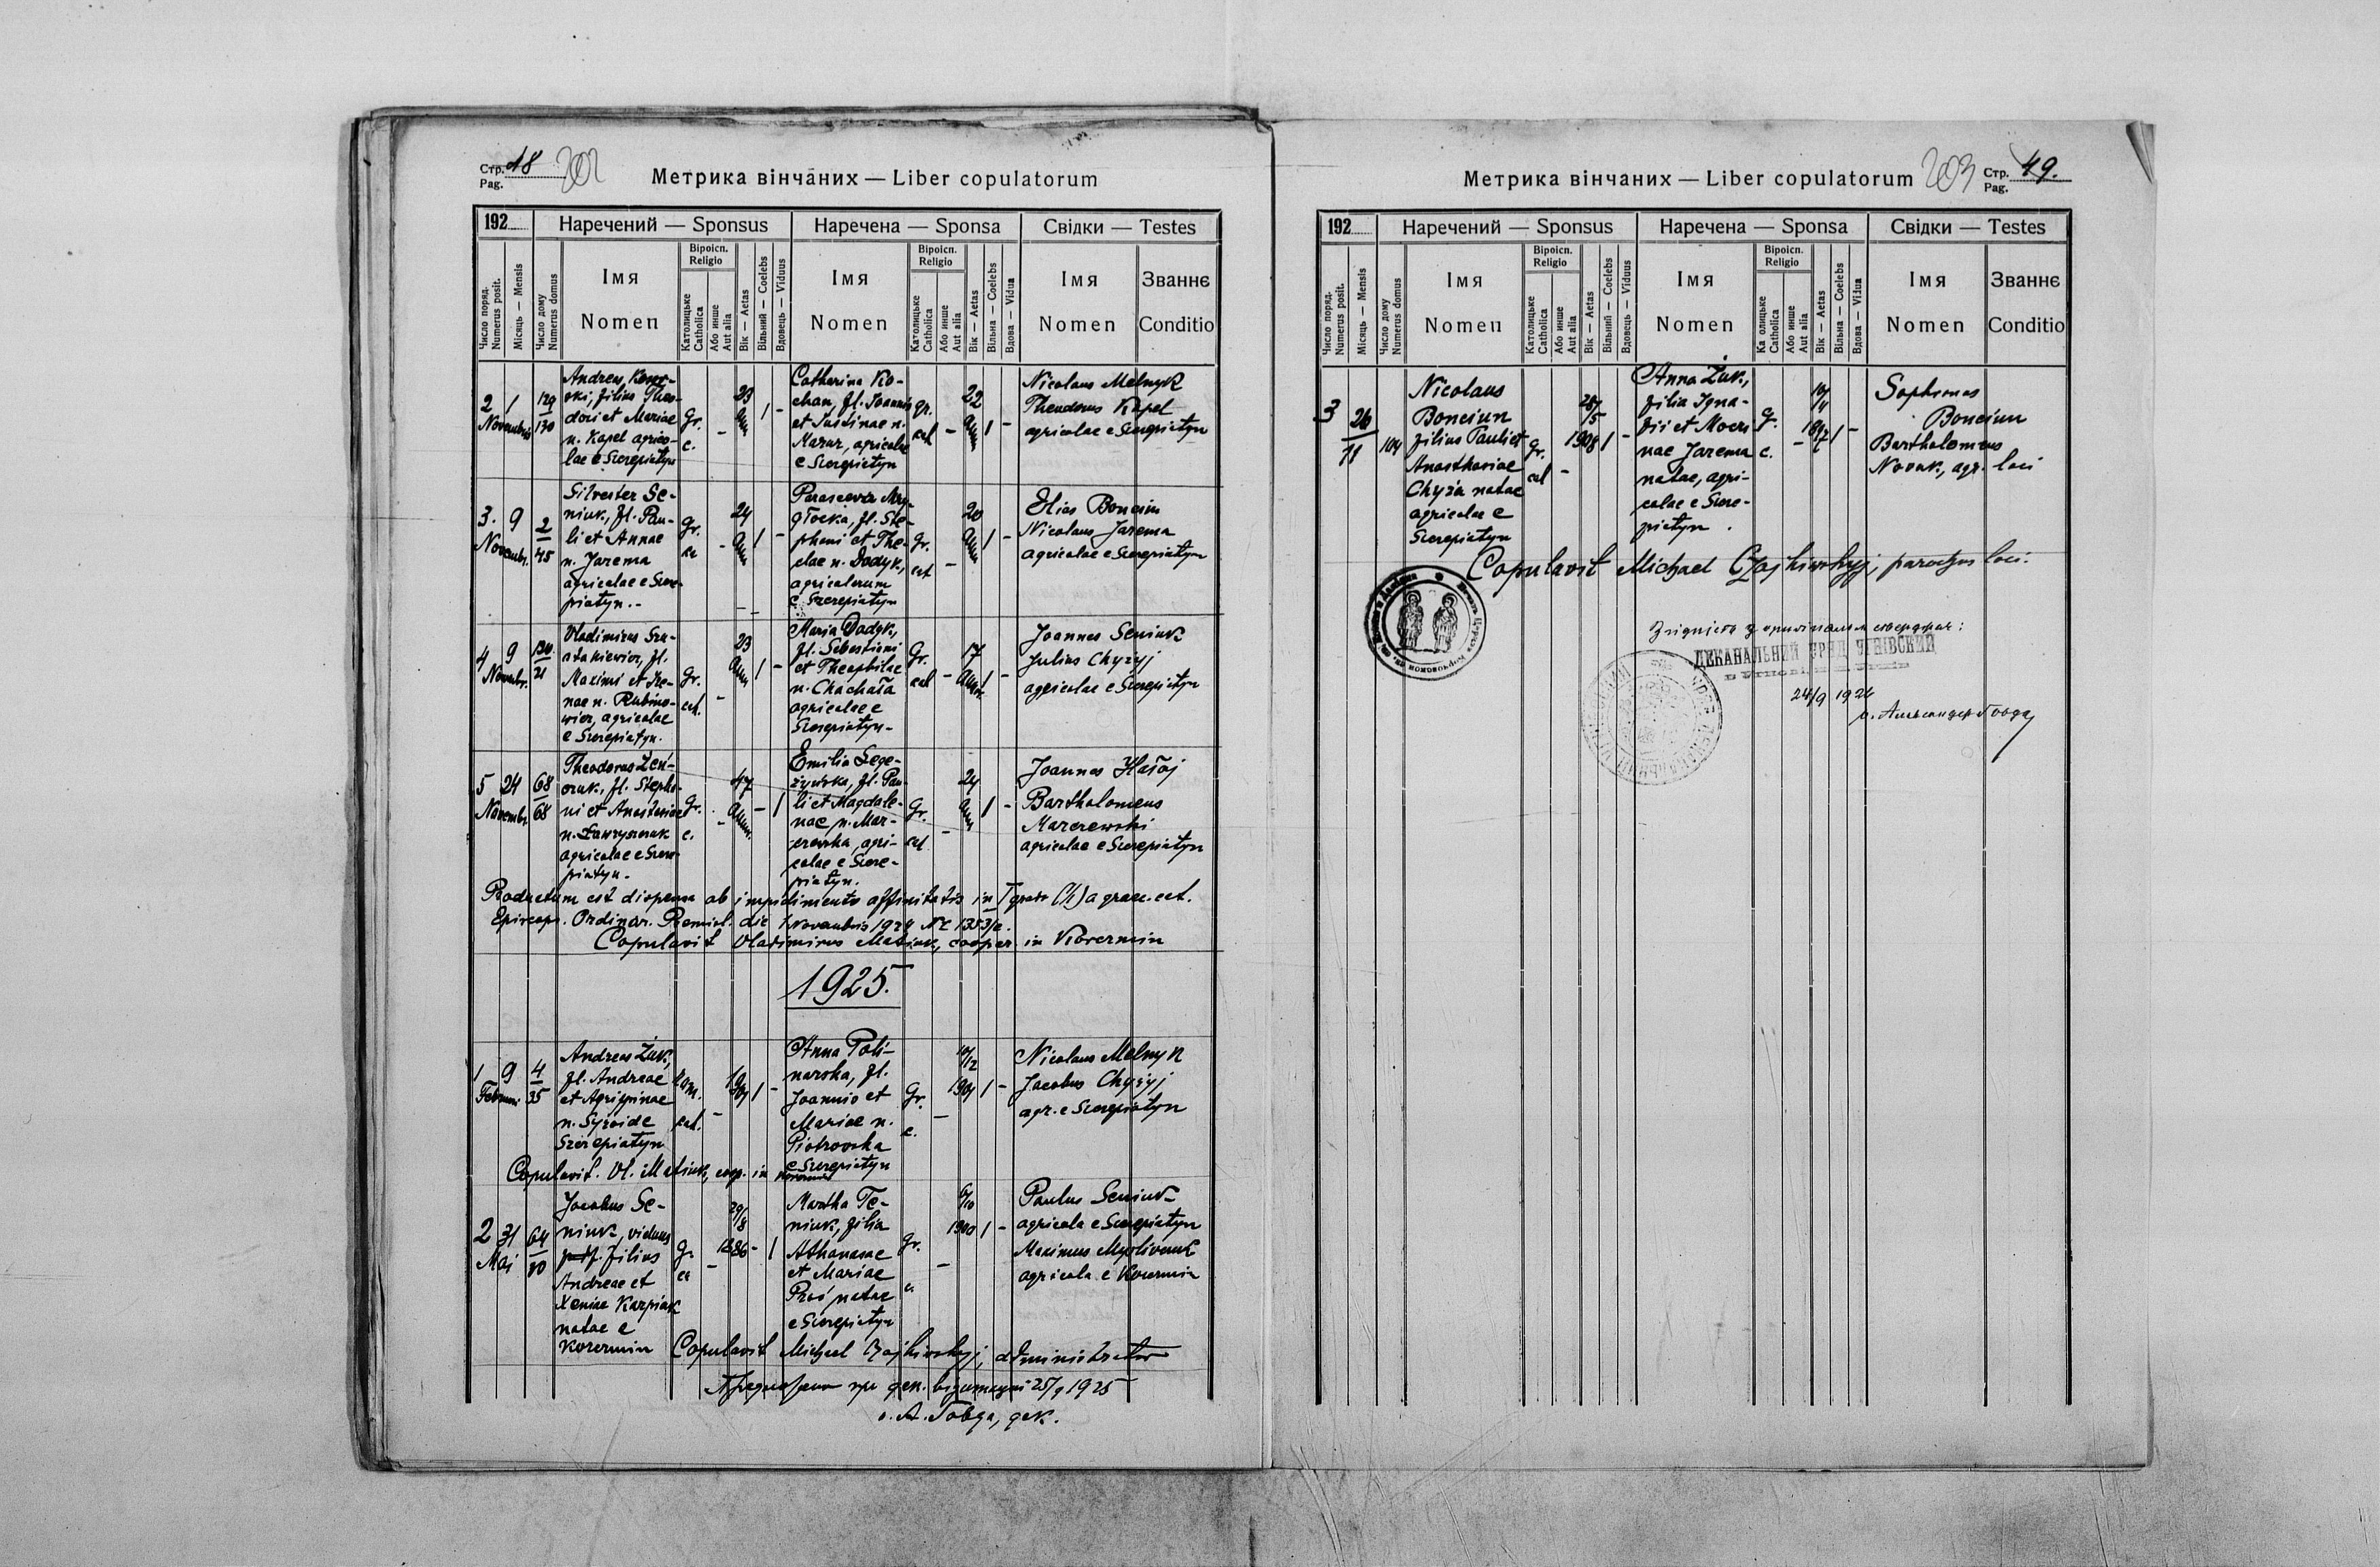 Стр. 48 202
Pag.
Метрика вінчаних — Liber copulatorum
192
Наречений — Sponsus
Наречена — Sponsa
Свідки — Testes
Число поряд.
Numerus posit.
Місяць — Mensis
Число дому
Numerus domus
Імя
Nomen
Віроісп.
Religio
Католицьке
Catholica
Або инше
Aut alia
Вік — Aetas
Вільний — Coelebs
Вдовець — Viduus
Імя
Nomen
Віроісп.
Religio
Католицьке
Catholica
Або инше
Aut alia
Вік — Aetas
Вільна — Coelebs
Вдова — Vidua
Імя
Nomen
Званнє
Conditio
2 1
Novembris
129
130
Andreas
filius Theo-
dori et Mariae
n. Kapel agrico-
lae e Szczepiatyn
Gr.
c.
-
23
Ann
1
-
Catharina Ko-
chan, fl. Joannis
et Justinae n.
Mazur, agricolae
e Szczepiatyn
Gr.
cat
-
22
Ann
1
-
Nicolaus Melnyk
Theodorus Kapel
agricolae e Szczepiatyn
3. 9
Novembr.
2
45
Silvester Se-
niuk, fl. Pau-
li et Annae
n. Jarema
agricolae e Szcze-
piatyn.-
Gr.
ca
-
24
Ann
1
-
Parascevia
fl. Ste-
phani et The-
clae n. Dadyk,
agricolarum
e Szczepiatyn
Gr.
cat
-
20
Ann
1
-
Elias Bonciun
Nicolaus Jarema
agricolae e Szczepiatyn
4 9
Novembr.
130
21
Vladimirus Szu-
atakiewicz, fl.
Maximi et Ire-
nae n. Rubino-
wicz, agricolae
e Szczepiatyn.
Gr.
cat.
-
23
Ann
1
-
Maria Dadyk,
fl. Sebastiani
et Theophilae
n. Chachała
agricolae e
Szczepiatyn-
Gr.
cat
-
17
Annor
1
-
Joannes Seniuk
Julius Chyzyj
agricolae e Szczepiatyn
5 24
Novembr.
68
68
Theodorus
fl. Stepha-
ni et Anastasiae
n. Ławryszczuk
agricolae e Szcze-
piatyn.
Gr.
c.
-
47
Annor.
-
1
Emilia Lege-
żyńska, fl. Pau-
li et Magdale-
nae n. Mar-
czewska, agri-
colae e Szcze-
piatyn.
Gr.
cat
-
24
Ann
1
-
Joannes Hałaj
Bartholomeus
Marczewski
agricolae e Szczepiatyn
Productum est dispensa ab impedimento affinitatis in I gradu a graec. cat.
Episcop. Ordinar. Premisl. die 1 Novembris 1924 Nr 1353/2.
Copulavit Vladimirus Matiuk, cooper. in Korczmin
1925.
1 9
Februari
4
35
Andreas Żuk,
fl. Andreae
et Agrippinae
n. Syroid e
Szczepiatyn
Rom.
cat.
-
1
-
Anna Poli-
narska, fl.
Joannis et
Mariae n.
Piotrowska
e Szczepiatyn
Gr.
c.
-
10/12
1904
1
-
Nicolaus Melnyk
Jacobus Chyżyj
agr. e Szczepiatyn
Copulavit. Vl. Matiuk, coop. in Korczmin
2 31
Mai
64
80
Jacobus Se-
niuk, viduus
filius
Andreae et
Xeniae Karpiak
natae e
Korczmin
Gr.
ca
-
29/8
1886
-
1
Martha Te-
niuk, filia
Athanasae
et Mariae
Proś natae
e Szczepiatyn
Gr.
c.
-
6/10
1900
1
-
Paulus Seniuk
agricola e Szczepiatyn
Maximus Mysliwczuk
agricola e Korczmin
Copulavit Michael Czajkiwskyj, administrator
при дек. візитації 25/9 1925
о. А. Говда, дек.
203 Стр. 49.
Pag.
Метрика вінчаних — Liber copulatorum
192
Наречений — Sponsus
Наречена — Sponsa
Свідки — Testes
Число поряд.
Numerus posit.
Місяць — Mensis
Число дому
Numerus domus
Імя
Nomen
Віроісп.
Religio
Католицьке
Catholica
Або инше
Aut alia
Вік — Aetas
Вільний — Coelebs
Вдовець — Viduus
Імя
Nomen
Віроісп.
Religio
Ка олицьке
Catholica
Або инше
Aut alia
Вік — Aetas
Вільна — Coelebs
Вдова — Vidua
Імя
Nomen
Званнє
Conditio
3
26
11
104
Nicolaus
Bonciun
filius Pauli et
Anasthasiae
Chyża natae
agricolae e
Szczepiatyn
Gr.
cat
-
28/5
1908
1
-
Anna Żuk,
filia Igna-
tii et Mocri
nae Jarema
natae, agri-
colae e Szcze-
piatyn.
G.
c.
-
10/4
1897
1
-
Sophonus
Bonciun
Bartholomeus
Nowak, agr. loci
Copulavit Michael Czajkiwskyj, parochus loci.
Згідність з оригіналом стверджає:
ДЕКАНАЛЬНИЙ УРЯД УГНІВСКИЙ
24/9 1926
о. Александер Говда